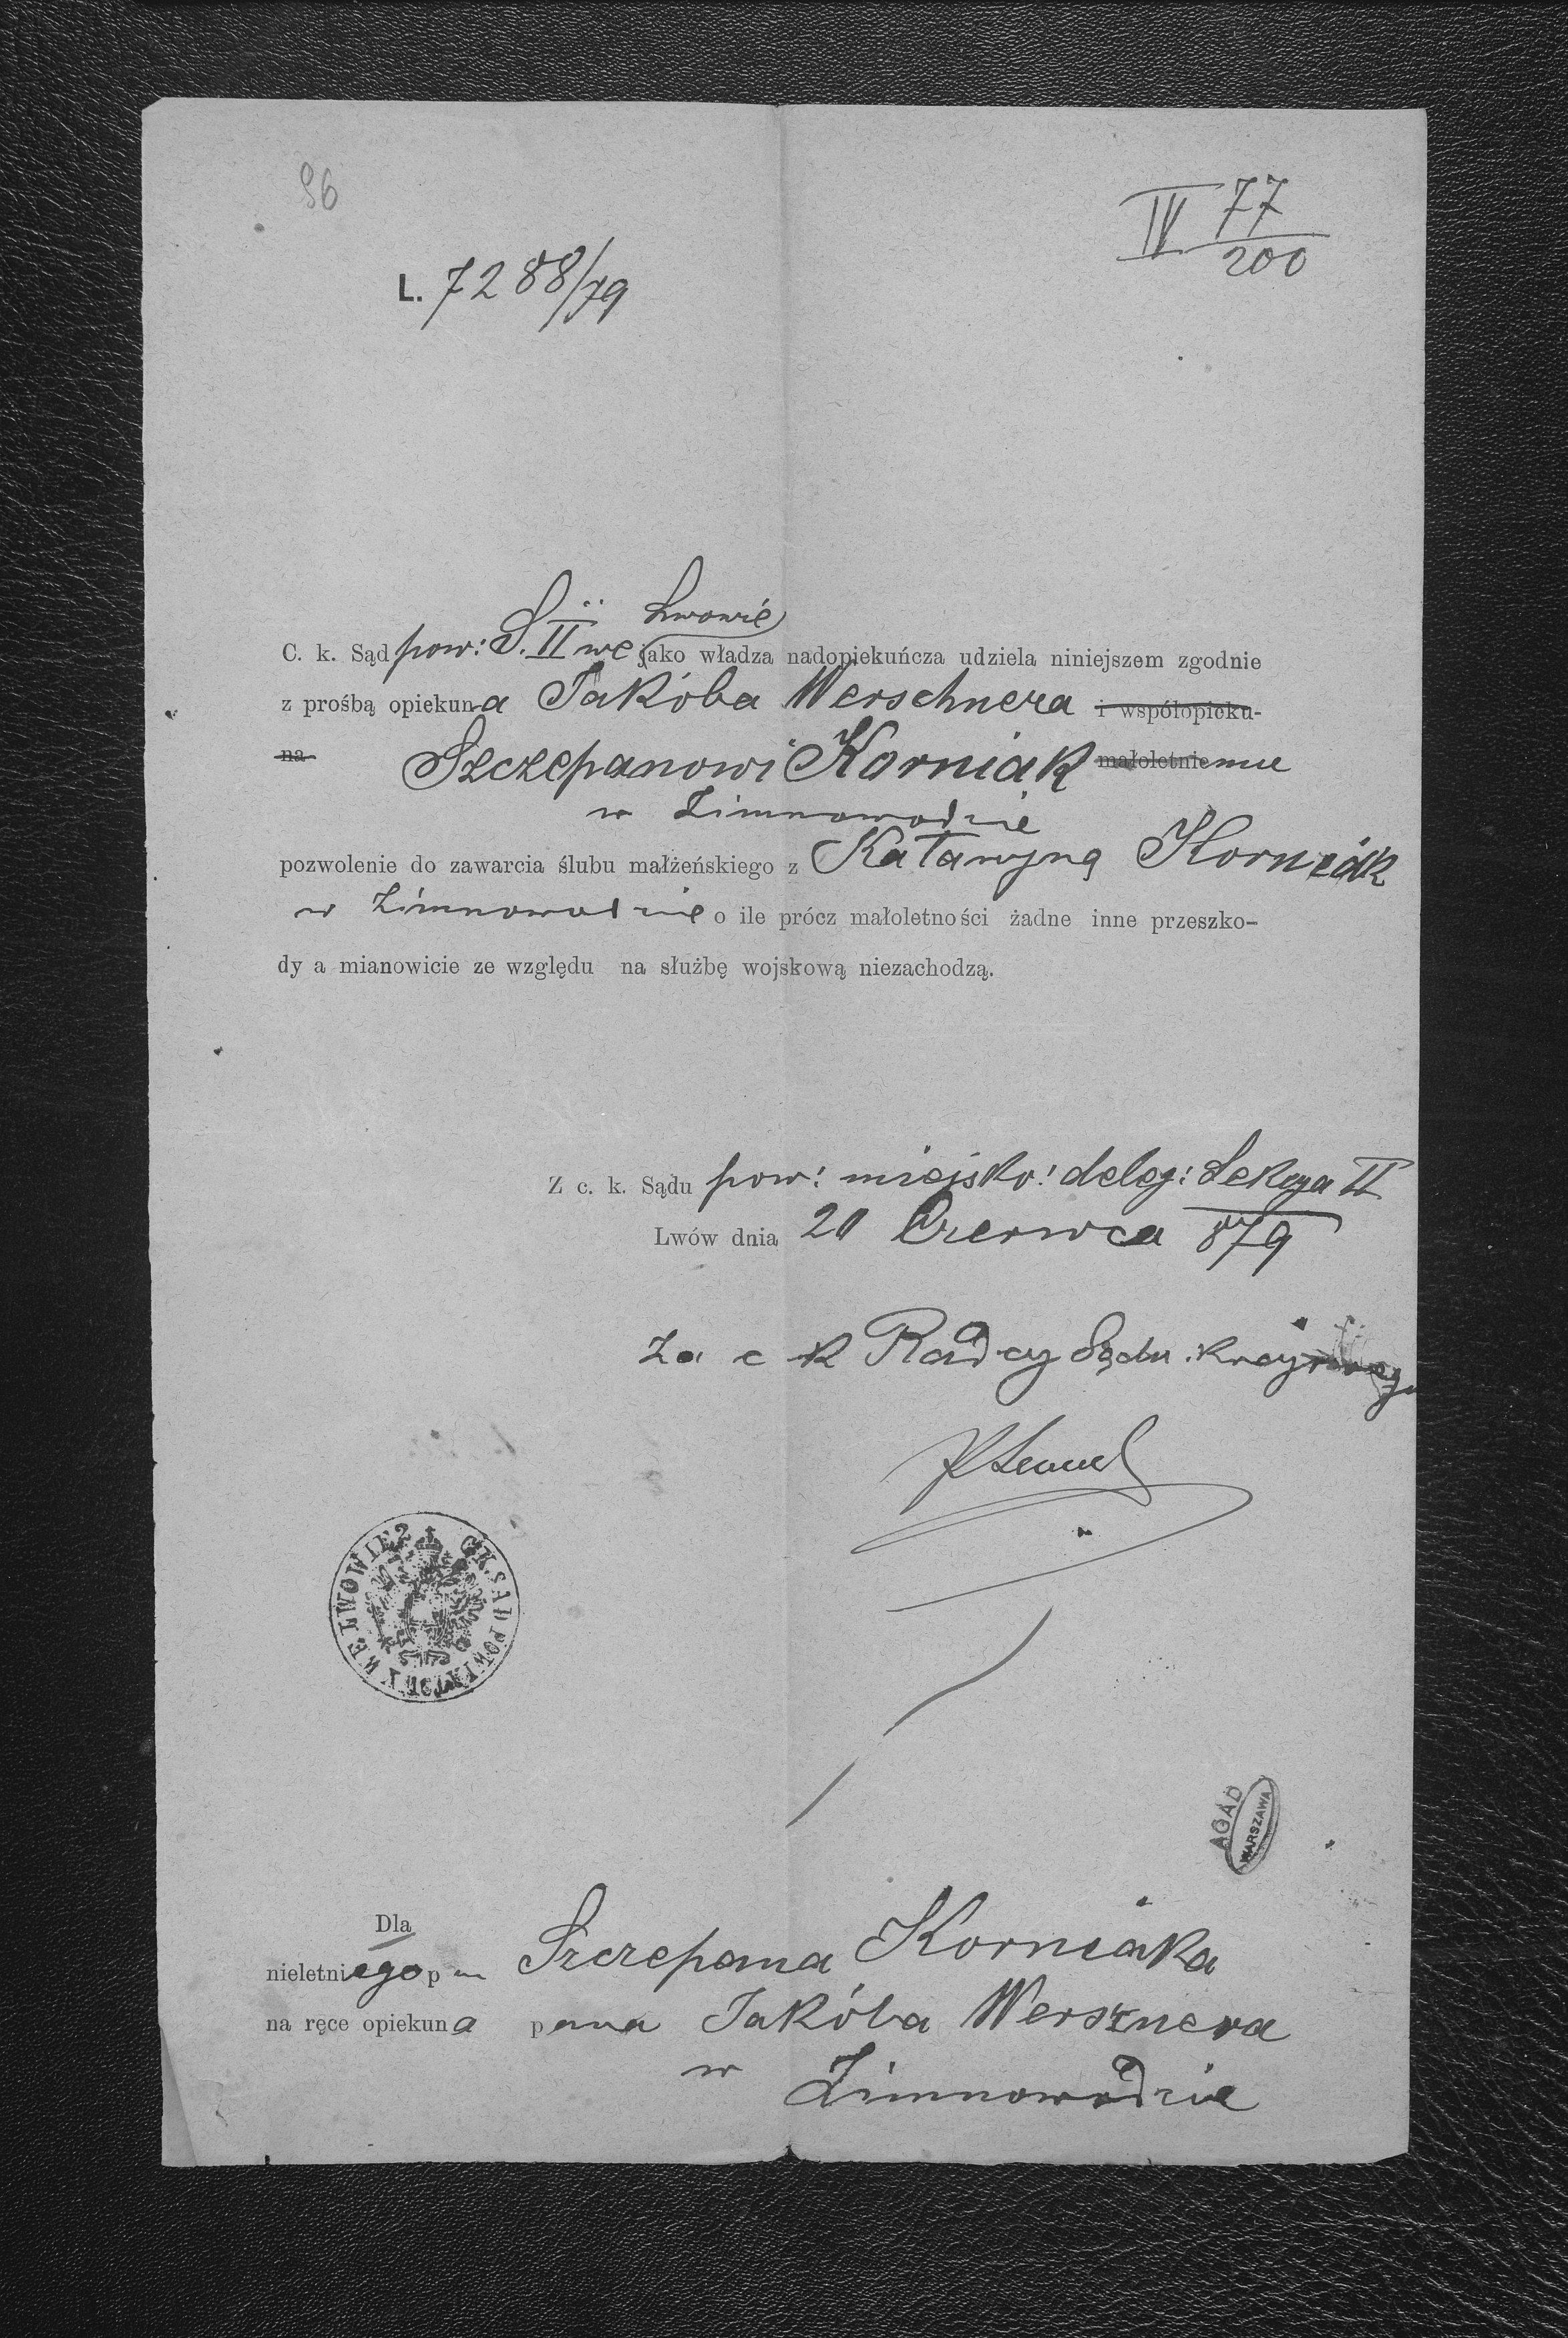 96
IV 77/200
L. 7288/79
Lwowie
C. k. Sąd pow: S. II we jako władza nadopiekuńcza udziela niniejszem zgodnie
z prośbą opiekuna Jakóba Werschnera i współopieku-
na Szczepanowi Korniak małoletniemu
w Zimnowodzie
pozwolenie do zawarcia ślubu małżeńskiego z Katarzyną Korniak
w Zimnowodzie o ile prócz małoletności żadne inne przeszko-
dy a mianowicie ze względu na służbę wojskową niezachodzą.
Z c. k. Sądu pow: miejsko: deleg: Sekcya II
Lwów dnia 20 Czerwca 879
Za c k Radcy Sądu krajowego
C.K. SĄD POWIATOWY WE LWOWIE 2
AGAD
WARSZAWA
Dla
nieletniego p Szczepana Korniaka
na ręce opiekuna pana Jakóba Wersznera
w Zimnowodzie